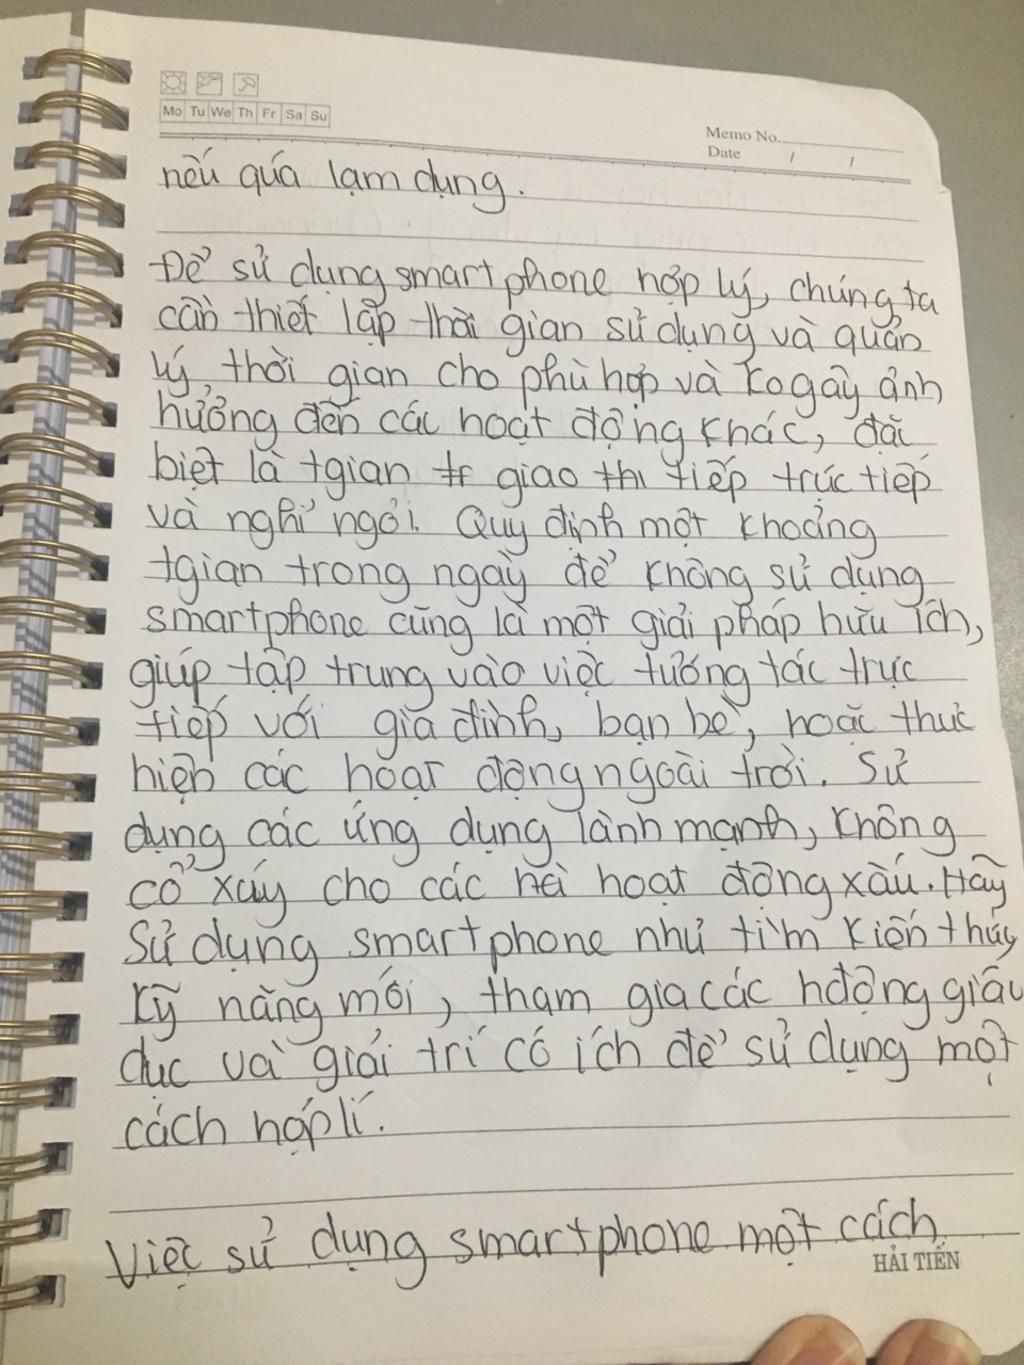 Mo Tu We Th Fr Sa Su
Memo No.
Date / /
nếu quá lạm dụng.
Để sử dụng smartphone hợp lý, chúng ta
cần thiết lập thời gian sử dụng và quản
lý thời gian cho phù hợp và ko gây ảnh
hưởng đến các hoạt động khác, đặc
biệt là tgian tr giao thi tiếp trực tiếp
và nghỉ ngơi. Quy định một khoảng
tgian trong ngày để không sử dụng
smartphone cũng là một giải pháp hữu ích,
giúp tập trung vào việc tương tác trực
tiếp với gia đình, bạn bè, hoặc thực
hiện các hoạt động ngoài trời. Sử
dụng các ứng dụng lành mạnh, không
cổ xúy cho các hà hoạt động xấu. Hãy
sử dụng smartphone như tìm kiến thức,
kỹ năng mới, tham gia các hđộng giáo
dục và giải trí có ích để sử dụng một
cách hợp lí.
Việc sử dụng smartphone một cách
HẢI TIẾN